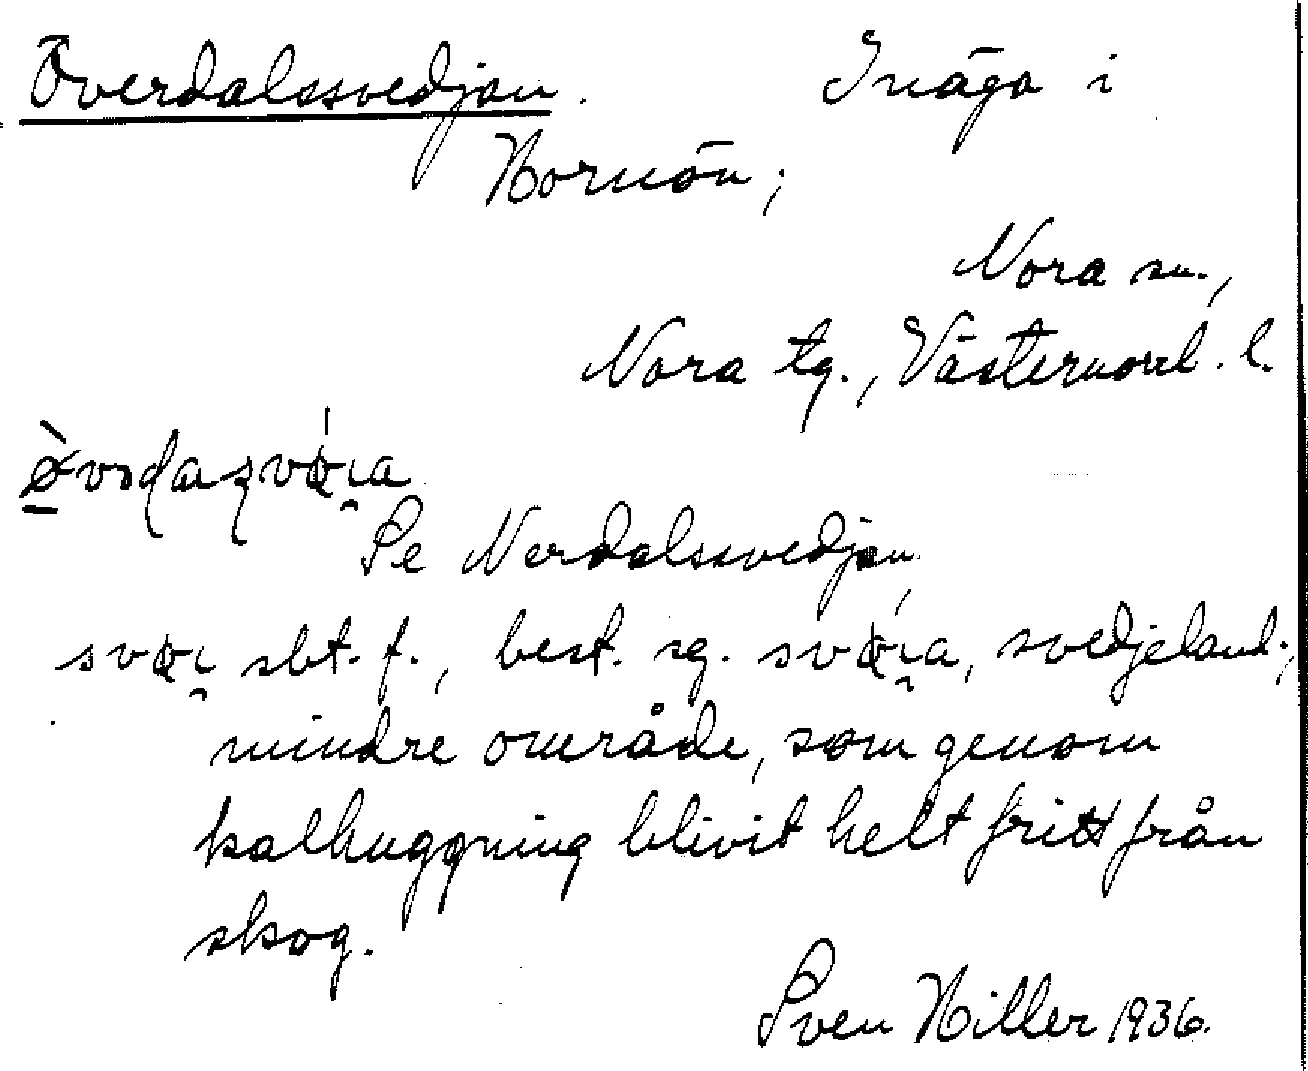 Överdalssvedjan. Inäga i
Hornön;
Nora sn.,
Nora tg., Västernorrl. l.
Se Nerdalssvedjan,
sbt. f., best. sg. svedjeland;
mindre område, som genom
kalhuggning blivit helt fritt från
skog.
Sven Hiller 1936.